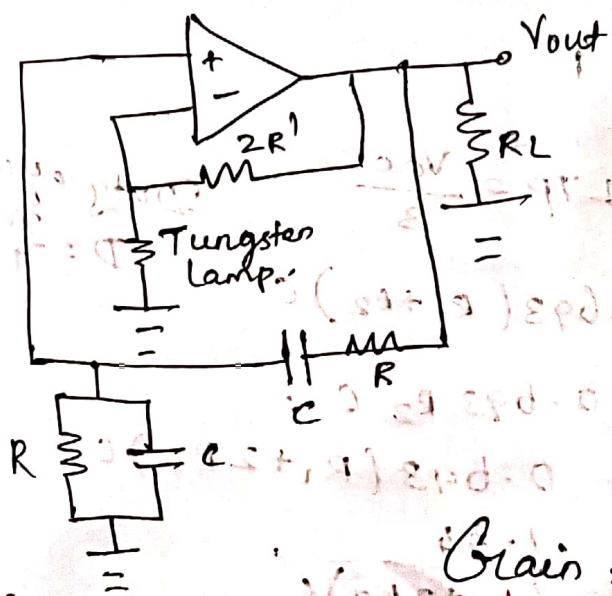 Vout
+
−
2R'
RL
Tungsten
Lamp.
R
C
R
C
Gain